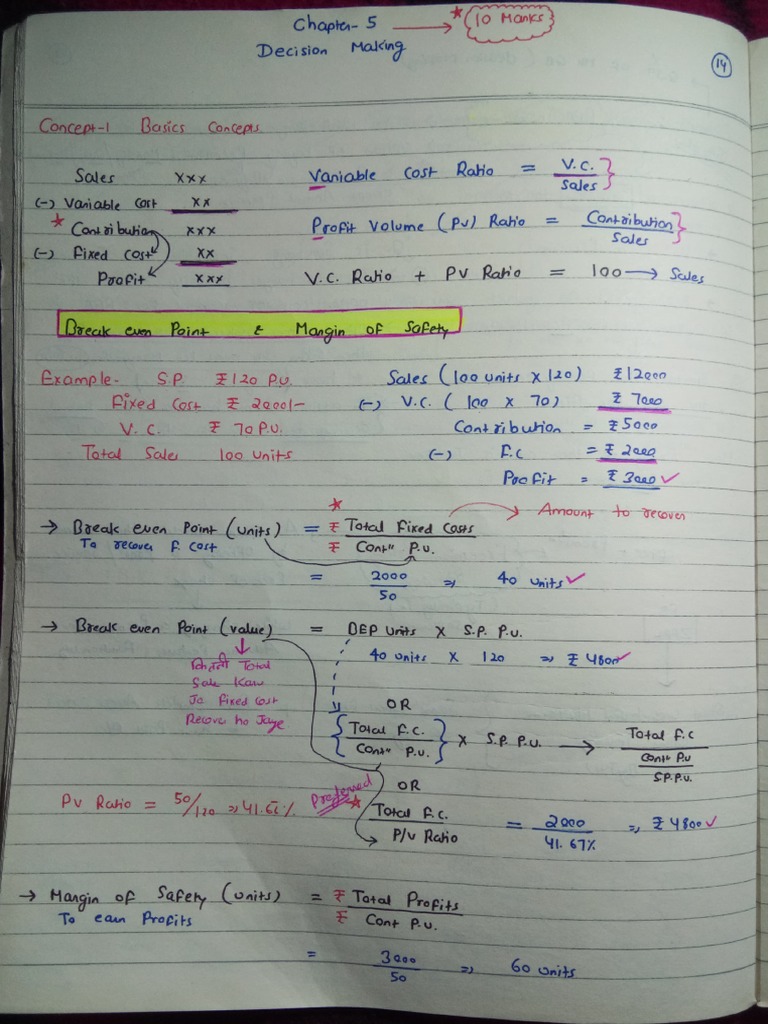 Chapter-5 → * 10 Marks
Decision Making
14
Concept-1 Basics Concepts
Sales xxx
(-) Variable cost xx
* Contribution xxx
(-) Fixed cost xx
Profit xxx
Variable Cost Ratio = V.C. / Sales
Profit Volume (PV) Ratio = Contribution / Sales
V.C. Ratio + PV Ratio = 100 → Sales
Break even Point & Margin of Safety
Example- S.P. ₹120 P.U.
Fixed Cost ₹ 2000/-
V.C. ₹ 70 P.U.
Total Sales 100 units
Sales (100 units x 120) ₹12000
(-) V.C. (100 x 70) ₹ 7000
Contribution = ₹5000
(-) F.C = ₹2000
Profit = ₹3000 ✓
→ Break even Point (units) = * ₹ Total Fixed Costs / ₹ Contⁿ P.U. → Amount to recover
To recover F. Cost
= 2000 / 50 ⇒ 40 units ✓
→ Break even Point (value) = BEP Units x S.P. P.U.
40 units x 120 ⇒ ₹4800 ✓
कितनी Total
Sale Karu
Ja fixed cost
Recover ho Jaye
OR
{Total F.C. / Contⁿ P.U.} x S.P. P.U. → Total F.C / Contⁿ P.U / S.P.P.U.
OR
PV Ratio = 50/120 ⇒ 41.66% Preferred *
Total F.C. / P/V Ratio = 2000 / 41.67% ⇒ ₹4800 ✓
→ Margin of Safety (units) = ₹ Total Profits / ₹ Cont P.U.
To earn Profits
= 3000 / 50 ⇒ 60 units